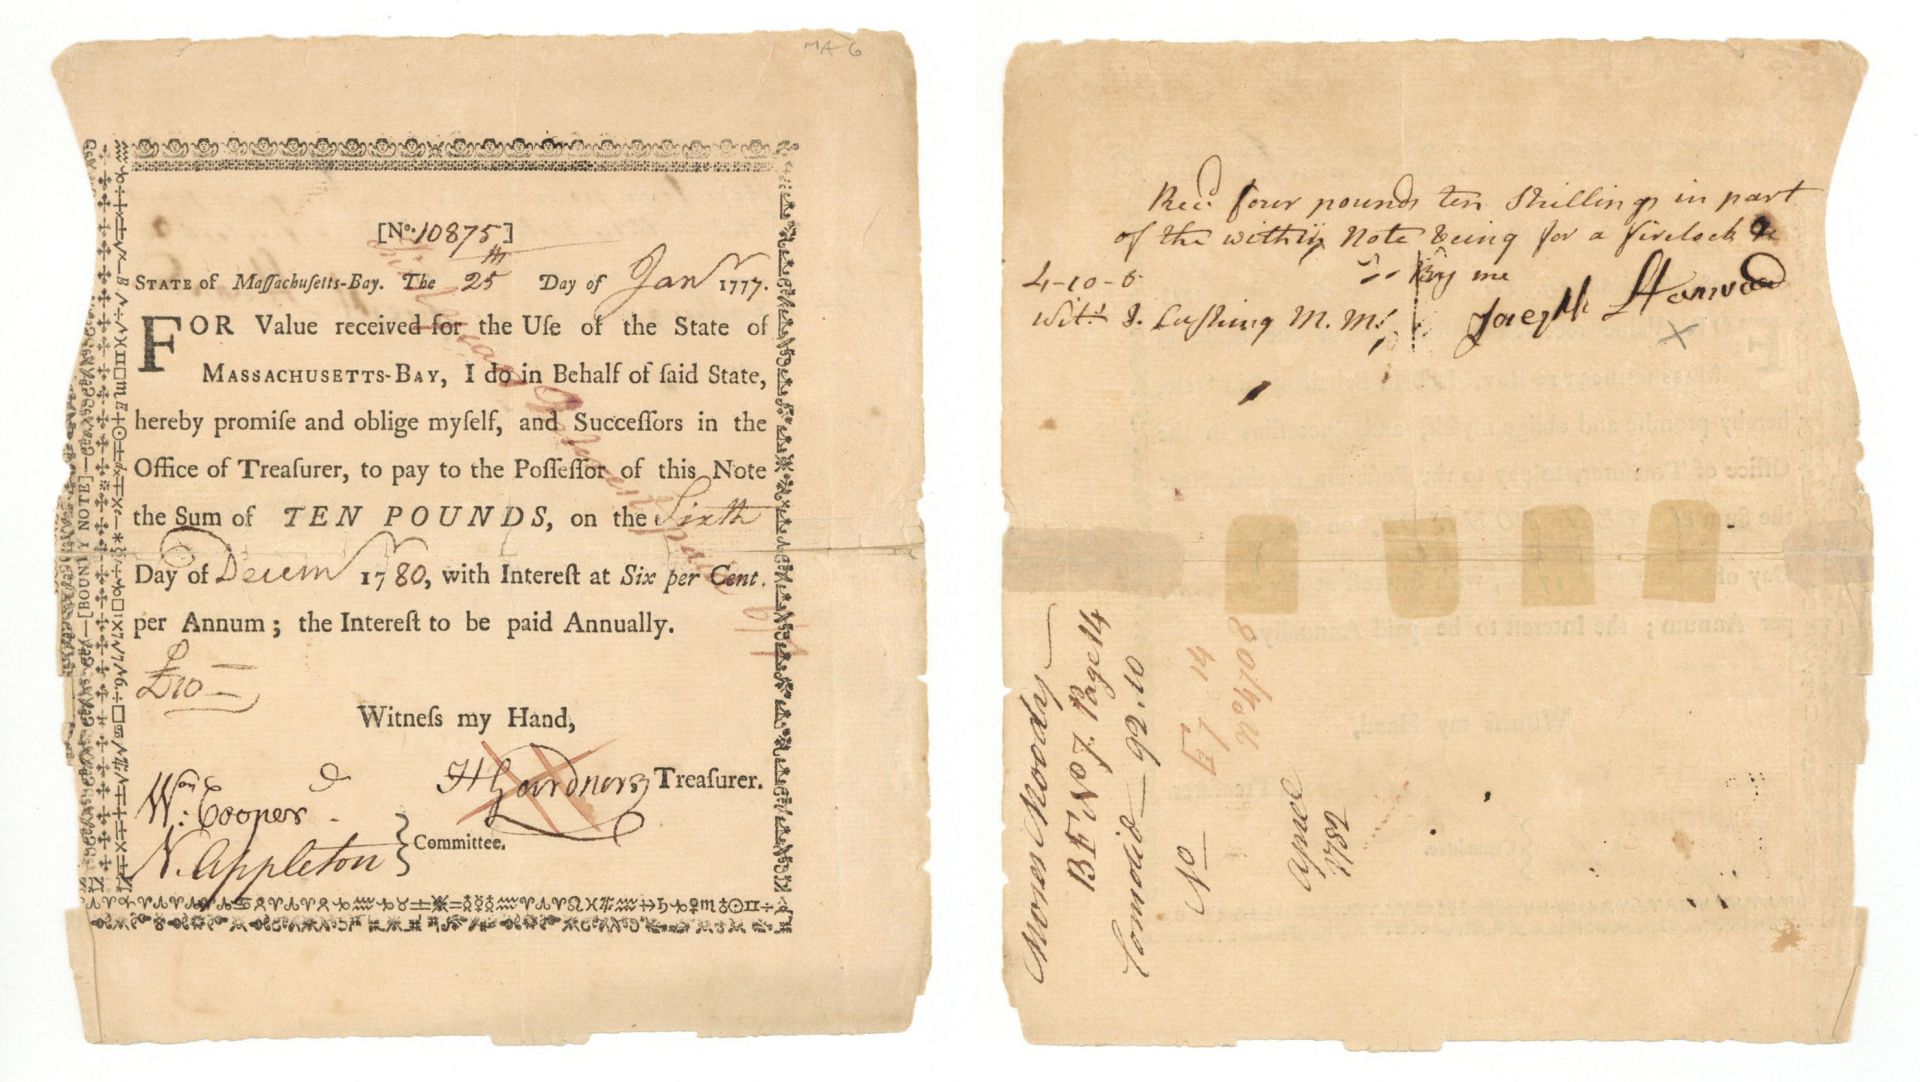 MA 6
[No. 10875]
STATE of Maſſachuſetts-Bay. The 25th Day of Janr 1777.
FOR Value received for the Uſe of the State of
MASSACHUSETTS-BAY, I do in Behalf of ſaid State,
hereby promiſe and oblige myſelf, and Succeſſors in the
Office of Treaſurer, to pay to the Poſſeſſor of this Note
the Sum of TEN POUNDS, on the Sixth
Day of Decemr 1780, with Intereſt at Six per Cent.
per Annum; the Intereſt to be paid Annually.
£10—
Witneſs my Hand,
H Gardner Treaſurer.
Wm: Cooper
N. Appleton } Committee.
[BOUNTY NOTE]
Recd. four pounds ten Shillings in part
of the within Note being for a firelock
4-10-0 By me
Witt. J. Cushing M. Mr. Joseph Harwood
Moses Moody
B E No 7. Page 14
92.10
No
April
1782